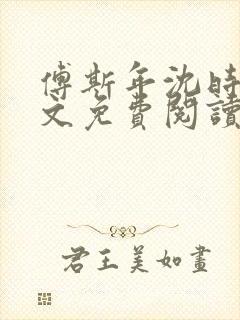 傅斯年沈時
文免費閱讀
君王美如畫